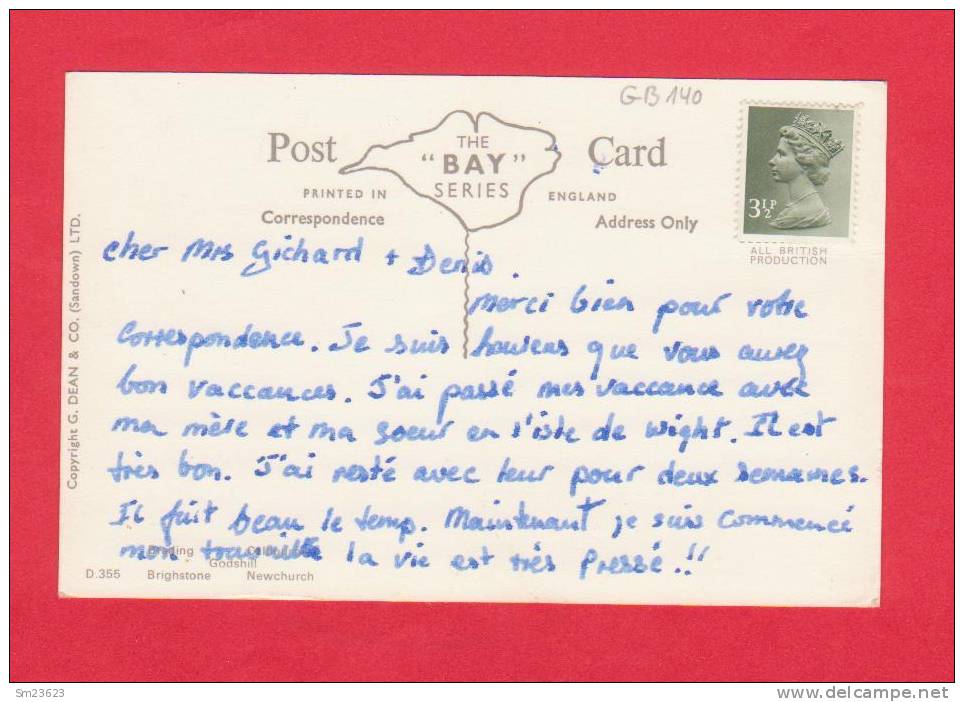 GB 140
Post Card
THE
"BAY"
SERIES
PRINTED IN ENGLAND
Correspondence Address Only
3½P
ALL BRITISH
PRODUCTION
Copyright G. DEAN & CO. (Sandown) LTD.
cher Mrs Gichard + Denis.
Merci bien pour votre
Correspondence. Je suis que vous avez
bon vaccances. J'ai passé mes vaccance avec
ma mère et ma soeur en l'isle de wight. Il est
très bon. J'ai resté avec leur pour deux semaines.
Il fait beau le temp. Maintenant je suis commencé
mon la vie est très pressé.!!
Brading
Godshill
D.355 Brighstone Newchurch
Sm23623
www.delcampe.net